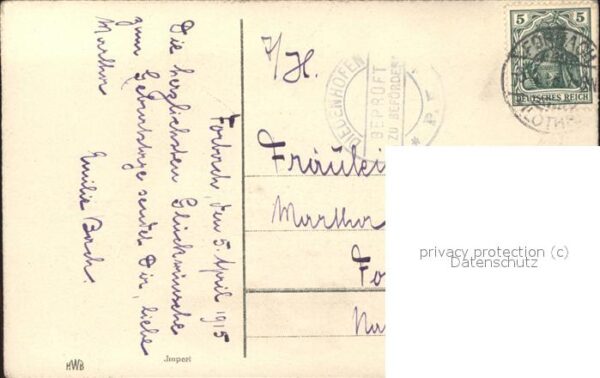 Forbach, den 5. April 1915
Die herzlichsten Glückwünsche
zum Geburtstage sendet Dir, liebe
Martha
Emilie Bach.
HWB
Import
F/H.
DIEDENHOFEN
GEPRÜFT
ZU BEFÖRDERN
P.K.
5 5
DEUTSCHES REICH
FORBACH
LOTHR
Fräulein
Martha
Fo
Na
privacy protection (c)
Datenschutz